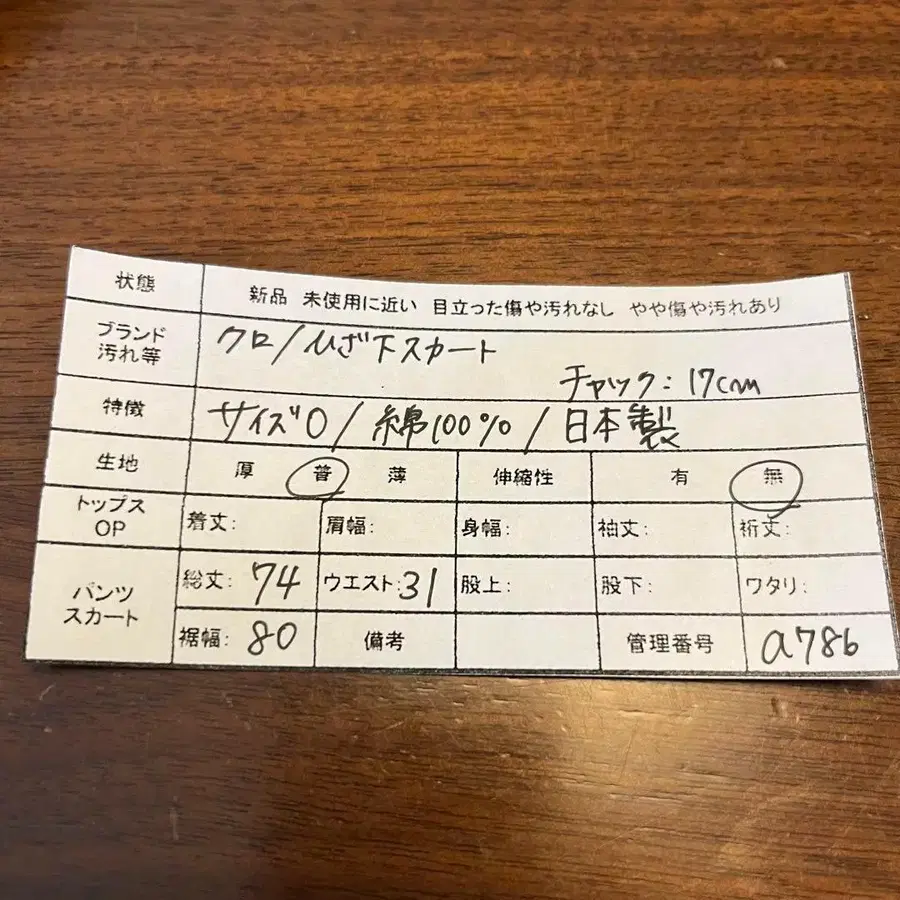 状態 新品 未使用に近い 目立った傷や汚れなし やや傷や汚れあり
ブランド 汚れ等 クロ/ひざ下スカート
チャック:17cm
特徴 サイズ0/綿100%/日本製
生地 厚 普 薄 伸縮性 有 無
トップス OP 着丈: 肩幅: 身幅: 袖丈: 裄丈:
パンツ スカート 総丈:74 ウエスト:31 股上: 股下: ワタリ:
裾幅:80 備考 管理番号 a786